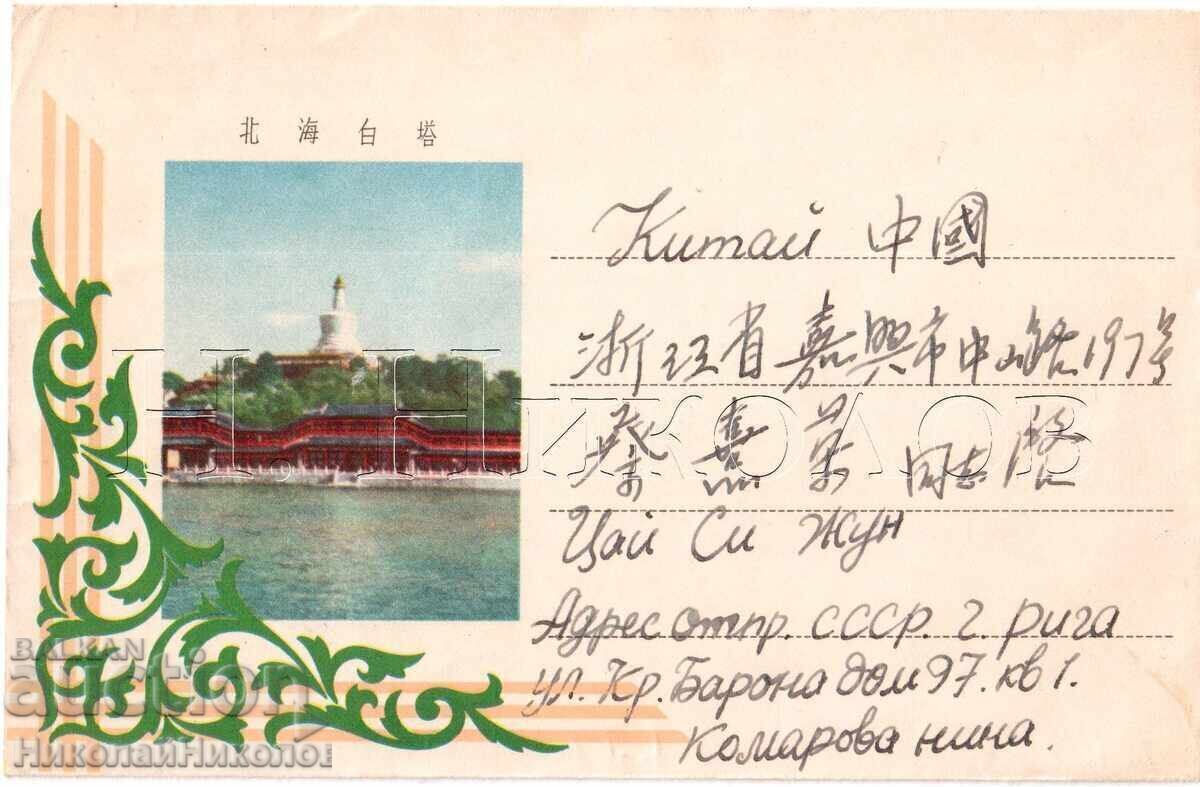 北海白塔
Китай 中國
浙江省嘉興市中山路197号
蔡喜蓉 同志 啓
Цай Си Жун
Адрес отпр. СССР. г. Рига
ул. Кр. Барона дом 97. кв 1.
Комарова Нина.
Н. НИКОЛОВ
BALKAN
auction
НиколайНиколов